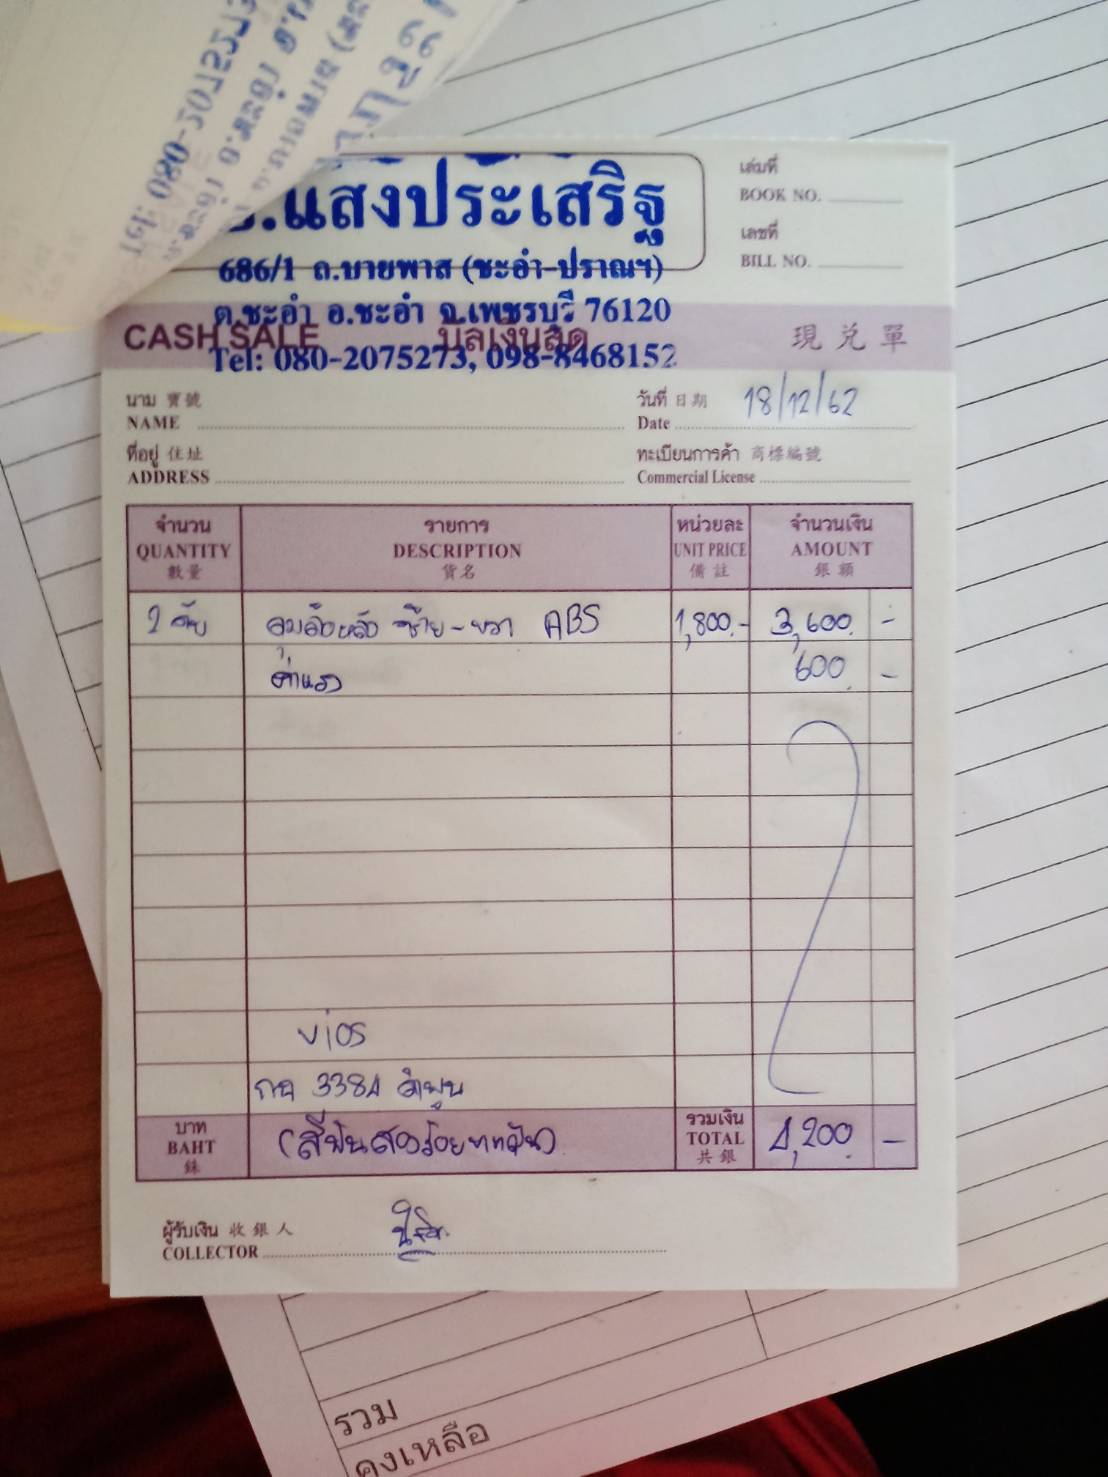 .แสงประเสริฐ
686/1 ถ.บายพาส (ชะอำ-ปราณฯ)
ต.ชะอำ อ.ชะอำ จ.เพชรบุรี 76120
Tel: 080-2075273, 098-8468152
เล่มที่
BOOK NO.
เลขที่
BILL NO.
CASH SALE บิลเงินสด 現兌單
นาม 寶號
NAME
วันที่ 日期 18/12/62
Date
ที่อยู่ 住址
ADDRESS
ทะเบียนการค้า 商標編號
Commercial License
จำนวน รายการ หน่วยละ จำนวนเงิน
QUANTITY DESCRIPTION UNIT PRICE AMOUNT
數量 貨名 備註 銀額
2 ซ้าย-ขวา ABS 1,800.- 3,600.-
ค่าแรง 600.-
vios
3384 ลำพูน
บาท
BAHT
銖
(สี่พันสองร้อยบาทถ้วน)
รวมเงิน
TOTAL
共銀
4,200.-
ผู้รับเงิน 收銀人
COLLECTOR
รวม
คงเหลือ